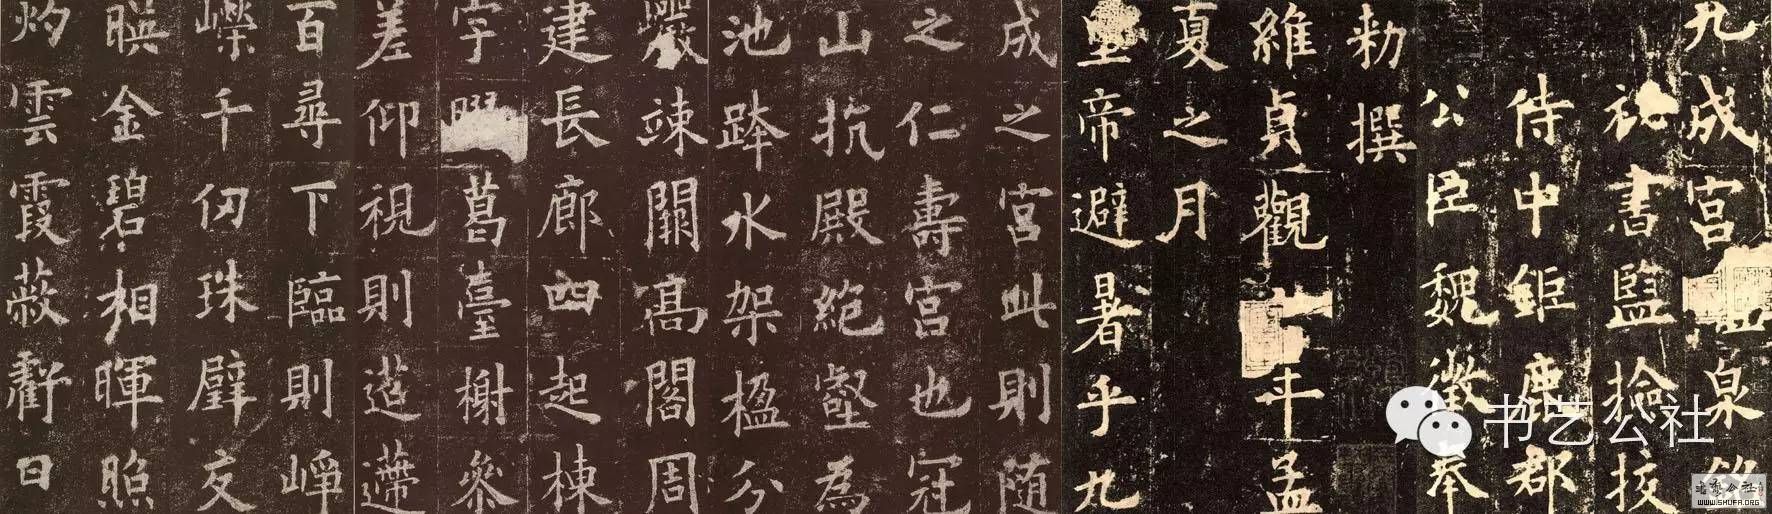 九成宮醴泉銘
秘書監撿挍
侍中鉅鹿郡
公臣魏徵奉
勅撰
維貞觀六年孟
夏之月
皇帝避暑乎九
成之宮此則随
之仁壽宮也冠
山抗殿絶壑為
池跨水架楹分
巖竦闕高閣周
建長廊四起棟
宇膠葛臺榭叅
差仰視則迢遰
百尋下臨則崢
嶸千仞珠璧交
暎金碧相暉照
灼雲霞蔽虧日
书艺公社
书艺公社
WWW.SHUFA.ORG